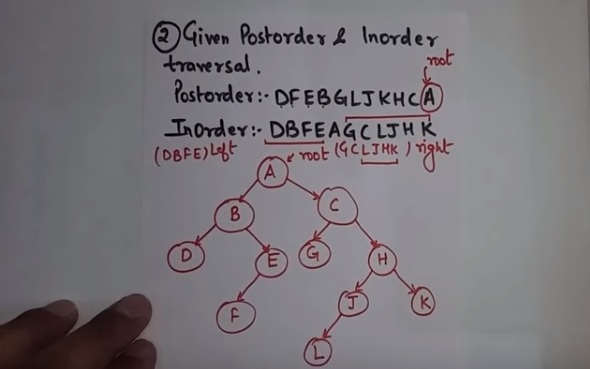 ② Given Postorder & Inorder
traversal.
root
Postorder:- DFEBGLJKHCA
Inorder:- DBFEAGCLJHK
(DBFE) Left root (GCLJHK) right
A
B C
D E G H
F J K
L